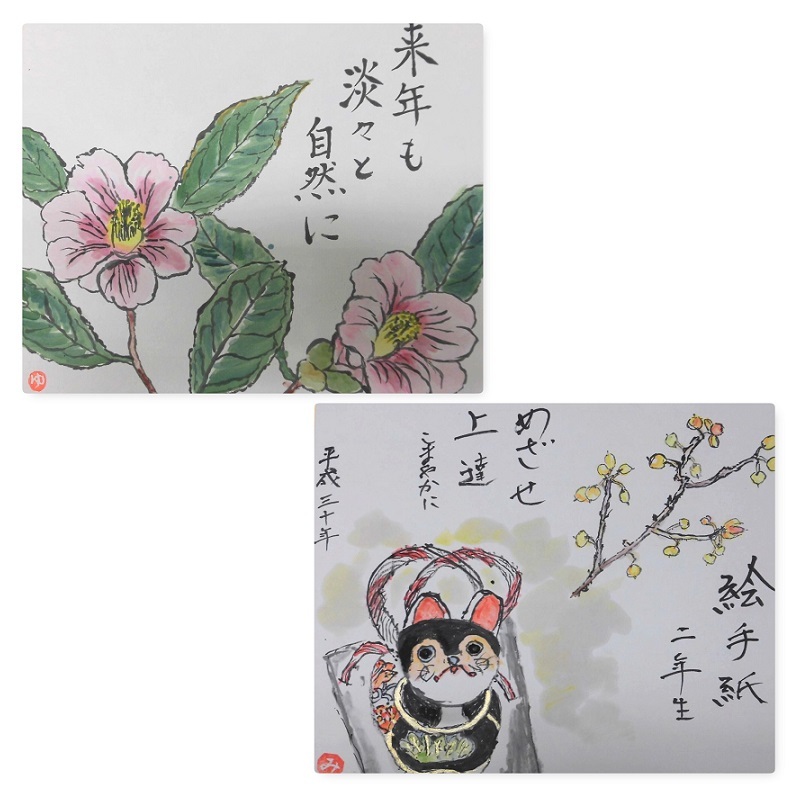 来年も
淡々と
自然に
ゆ
絵手紙
二年生
めざせ
上達
こまやかに
平成三十年
み